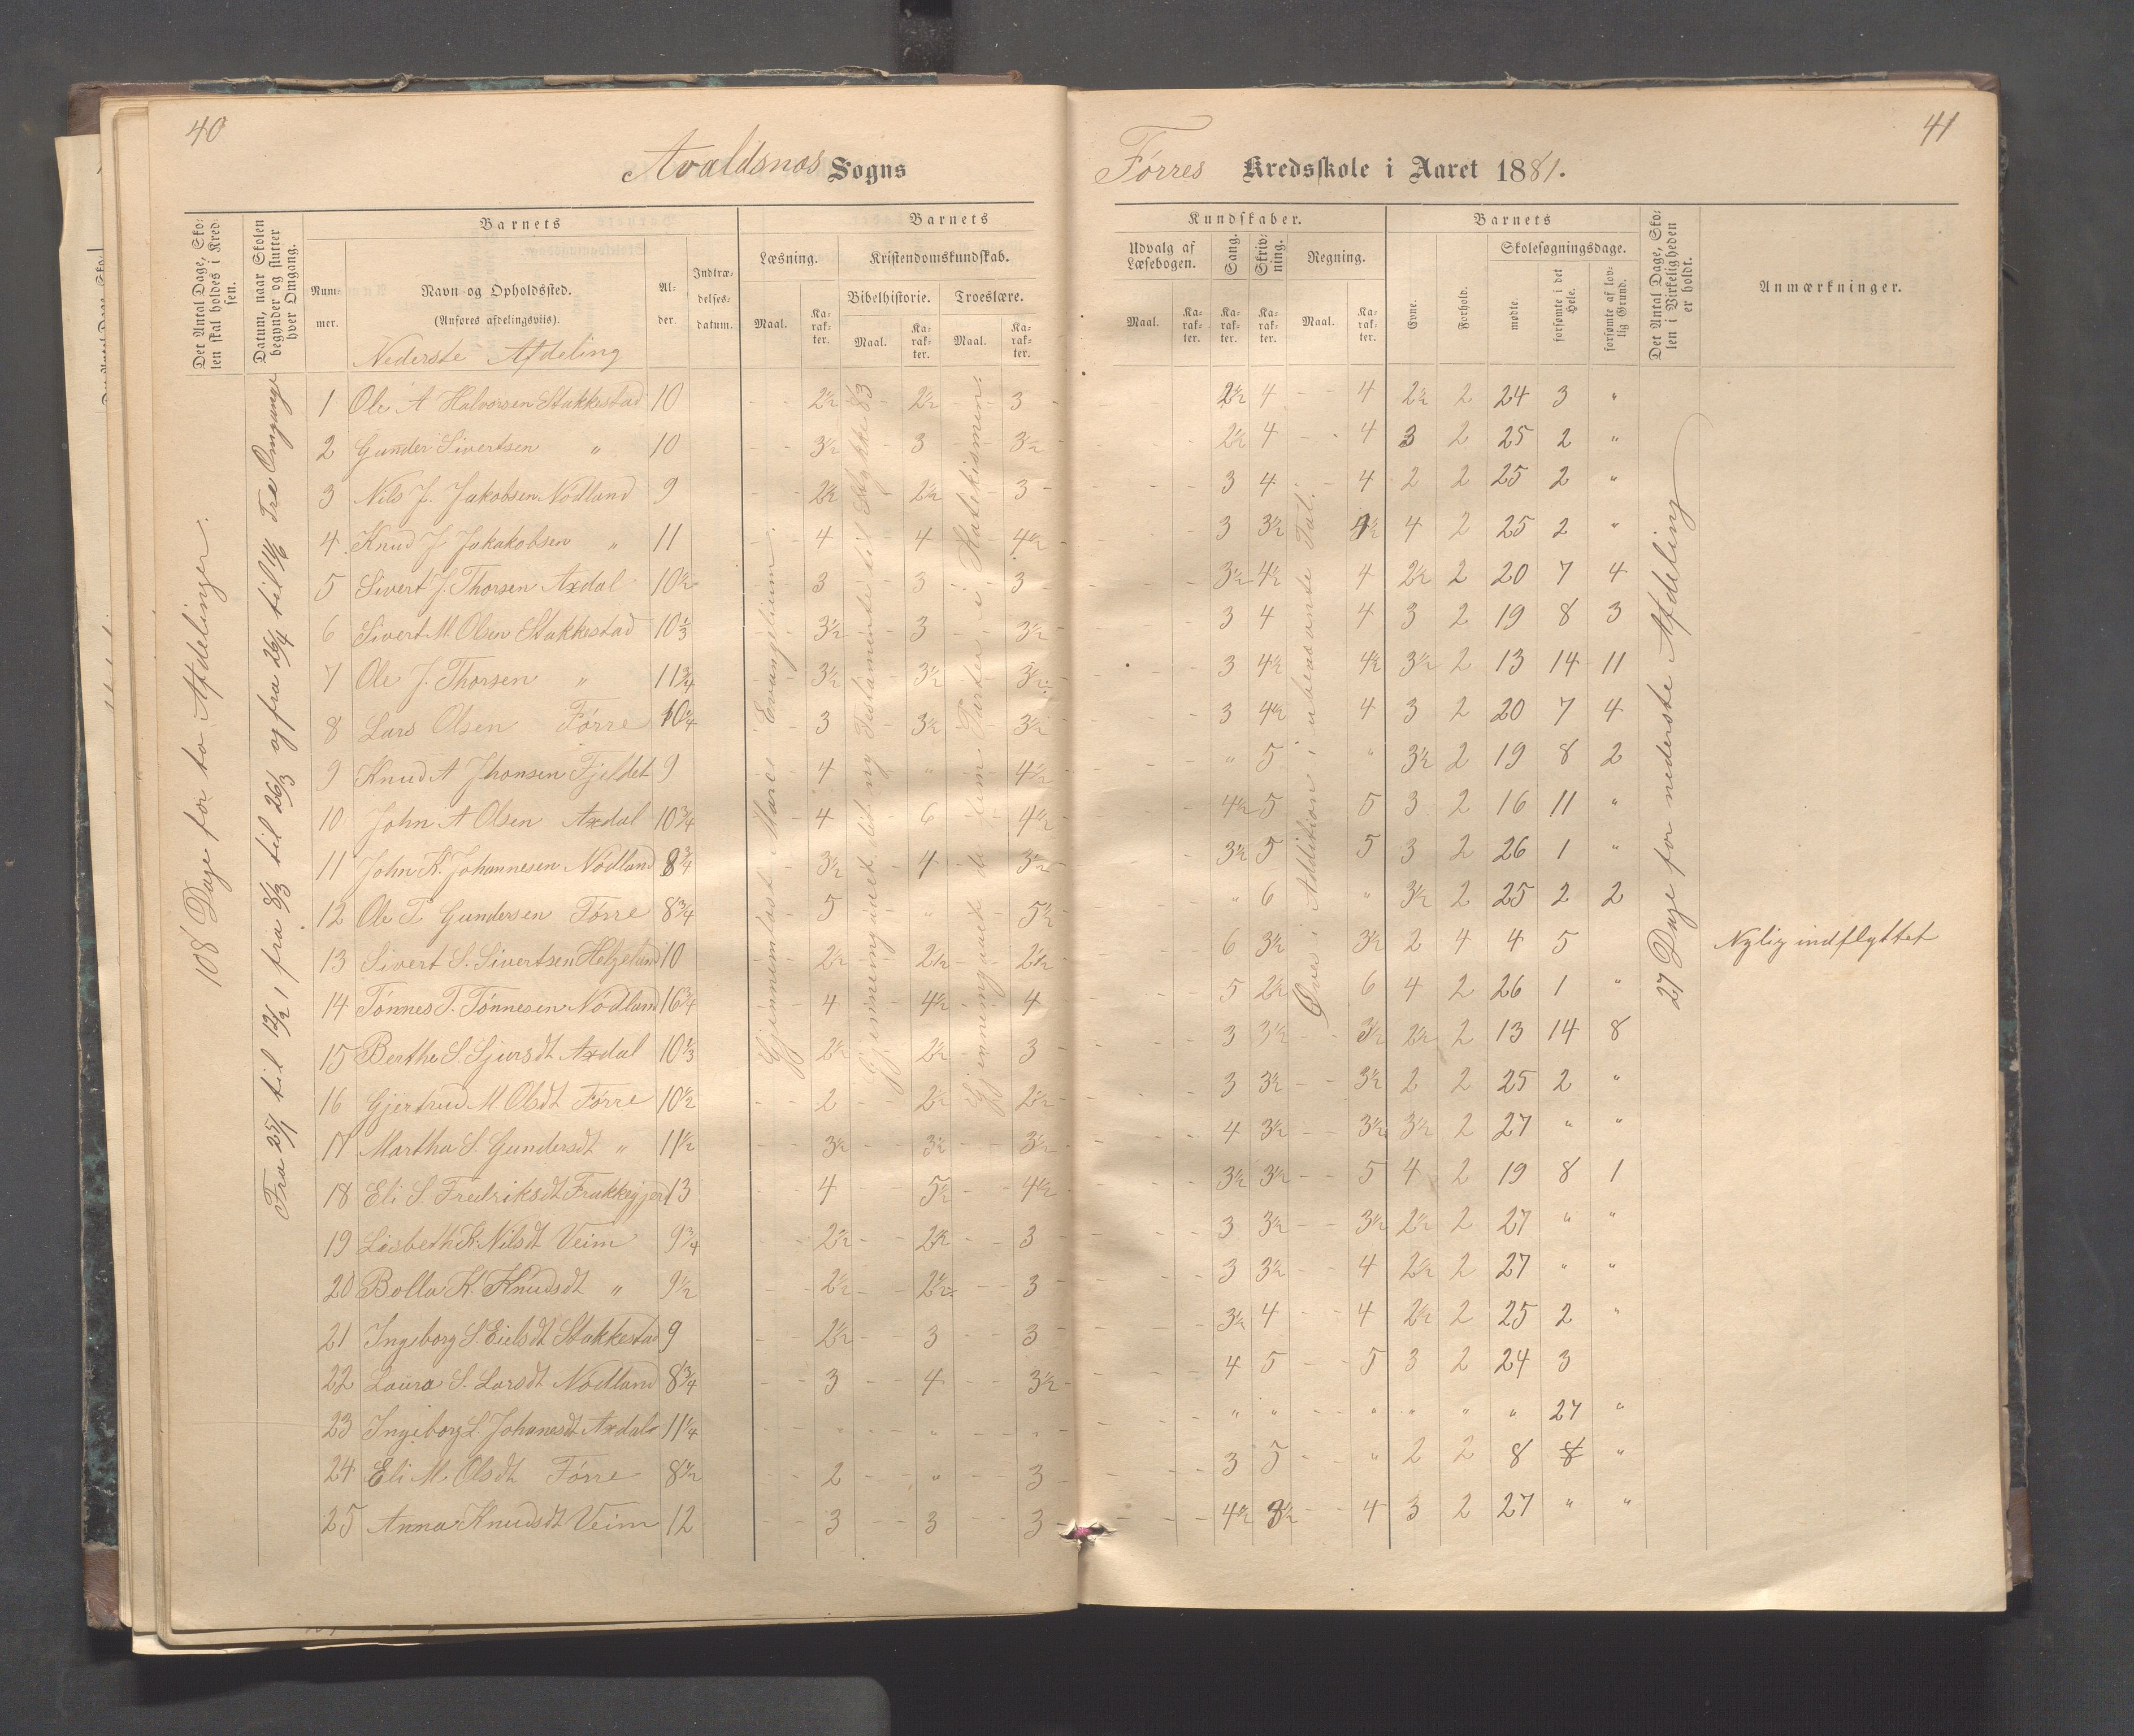 40
Avaldsnæs Sogns
Det Antal Dage, Sko-
len skal holdes i Kred-
sen.
Datum, naar Skolen
begynder og slutter
hver Omgang.
Barnets
Num-
mer.
Navn og Opholdssted.
(Anføres afdelingsviis).
Nederste Afdeling
Al-
der.
Indtræ-
delses-
datum.
Barnets
Læsning.
Maal.
Ka-
rak-
ter.
Kristendomskundskab.
Bibelhistorie.
Maal.
Ka-
rak-
ter.
Troeslære.
Maal.
Ka-
rak-
ter.
108 Dage for to Afdelinger.
Fra 25/1 til 12/2 fra 8/3 til 26/3 og fra 26/4 til 14/6 Tre Omgange
Gjennemlæst Marci Evangelium.
Gjennemgaaet det ny Testamente til Stykke 83
Gjennemgaaet de fem Parter i Katekismen.
1 Ole A Halvorsen Stakkestad 10 2½ 2½ 3
2 Gunder Sivertsen " 10 3½ 3 3½
3 Nils J. Jakobsen Nodland 9 2½ 2½ 3
4 Knud J Jakakobsen " 11 4 4 4½
5 Sivert J. Thorsen Axdal 10½ 3 3 3
6 Sivert M. Olsen Stakkestad 10⅓ 3½ 3 3½
7 Ole J. Thorsen " 11¾ 3½ 3½ 3½
8 Lars Olsen Førre 10¼ 3 3½ 3½
9 Knud A Jhonsen Fjeldet 9 4 " 4½
10 John A Olsen Axdal 10¾ 4 6 4½
11 John K. Johannesen Nodland 8¾ 3½ 4 3½
12 Ole T Gundersen Førre 8¾ 5 " 5½
13 Sivert S. Sivertsen Helgeland 10 2½ 2½ 2½
14 Tønnes T. Tønnesen Nodland 16¾ 4 4½ 4
15 Berthe S. Sjursdt Axdal 10⅓ 2½ 2½ 3
16 Gjertrud M Olsdt Førre 10½ 2 2½ 2½
17 Martha S. Gundersdt " 11½ 3½ 3½ 3½
18 Eli S. Fredriksdt Frakkegjerd 13 4 5½ 4½
19 Lisbeth K. Nilsdt Veim 9¾ 2½ 2½ 3
20 Bolla K. Knudsdt " 9½ 2½ 2½ 3
21 Ingeborg S Eielsdt Stakkestad 9 2½ 3 3
22 Laura S. Larsdt Nodland 8¾ 3 4 3½
23 Ingeborg L. Johanesdt Axdal 11¼ " " "
24 Eli M. Olsdt Førre 8½ 2 " 3
25 Anna Knudsdt Veim 12 3 3 3
41
Førres Kredsskole i Aaret 1881.
Kundskaber.
Udvalg af
Læsebogen.
Maal.
Ka-
rak-
ter.
Sang.
Ka-
rak-
ter.
Skriv-
ning.
Ka-
rak-
ter.
Regning.
Maal.
Ka-
rak-
ter.
Barnets
Evne.
Forhold.
Skolesøgningsdage.
mødte.
forsømte i det
Hele.
forsømte af lov-
lig Grund.
Det Antal Dage, Sko-
len i Virkeligheden
er holdt.
Anmærkninger.
Øves i Addition i ubenævnte Tal.
27 Dage for nederste Afdeling
2½ 4 4 2½ 2 24 3 "
2½ 4 4 3 2 25 2 "
3 4 4 2 2 25 2 "
3 3½ 4½ 4 2 25 2 "
3½ 4½ 4 2½ 2 20 7 4
3 4 4 3 2 19 8 3
3 4½ 4½ 3½ 2 13 14 11
3 4½ 4 3 2 20 7 4
" 5 " 3½ 2 19 8 2
4½ 5 5 3 2 16 11 "
3½ 5 5 3 2 26 1 "
" 6 " 3½ 2 25 2 2
6 3½ 3½ 2 4 4 5 Nylig indflyttet
5 2½ 6 4 2 26 1 "
3 3½ 3½ 2½ 2 13 14 8
3 3½ 3½ 2 2 25 2 "
4 3½ 3½ 3½ 2 27 " "
3½ 3½ 5 4 2 19 8 1
3 3½ 3½ 2½ 2 27 " "
3 3½ 4 2½ 2 27 " "
3½ 4 4 2½ 2 25 2 "
4 5 5 3 2 24 3
" " " " " " 27 "
3 5 " 2 2 8 8 "
4½ 3½ 4 3 2 27 " "